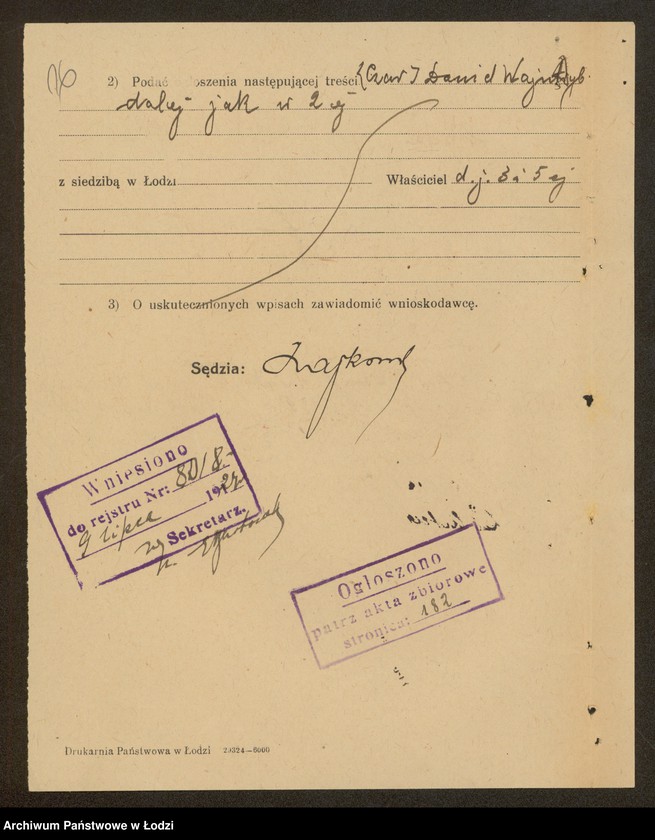 2) Podać ogłoszenia następującej treści Dawid Wajn
dalej jak w 2 ej
z siedzibą w Łodzi Właściciel d. j. 3 i 5 ej
3) O uskutecznionych wpisach zawiadomić wnioskodawcę.
Sędzia:
Wniesiono
do rejestru Nr:
9 lipca 19
Sekretarz.
Ogłoszono
patrz akta zbiorowe
stronica: 182
Drukarnia Państwowa w Łodzi 20324—6000
Archiwum Państwowe w Łodzi